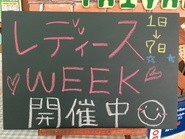 レディース
1日
↓
7日
WEEK
開催中